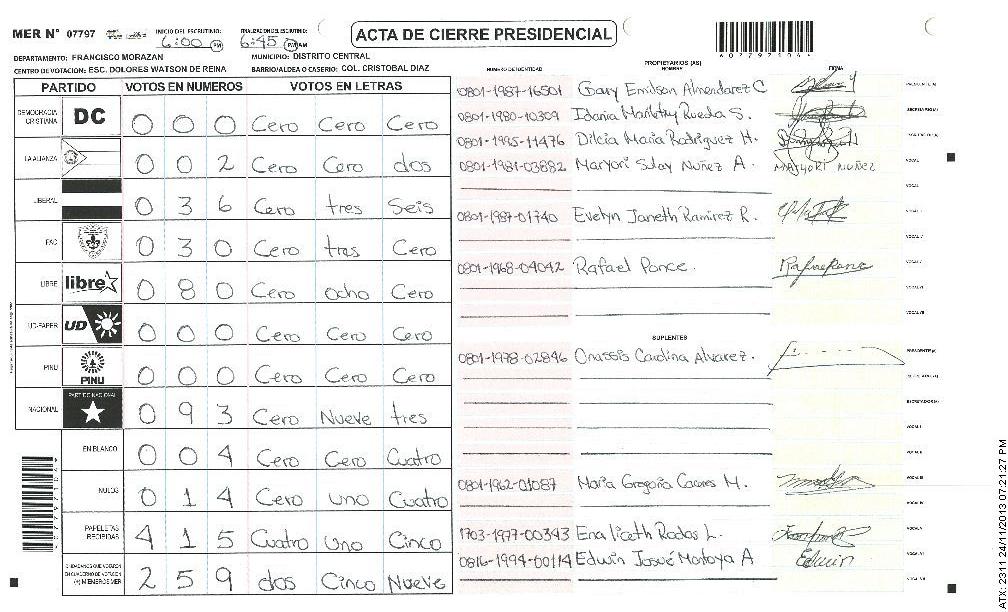 MER N° 07797 INICIO DEL ESCRUTINIO: 6:00 PM FINALIZACION DEL ESCRUTINIO: 6:45 PM AM
ACTA DE CIERRE PRESIDENCIAL
4077971044
DEPARTAMENTO: FRANCISCO MORAZAN MUNICIPIO: DISTRITO CENTRAL
CENTRO DE VOTACION: ESC. DOLORES WATSON DE REINA BARRIO/ALDEA O CASERIO: COL. CRISTOBAL DIAZ
PARTIDO VOTOS EN NUMEROS VOTOS EN LETRAS
DEMOCRACIA CRISTIANA DC 0 0 0 Cero Cero Cero
LA ALIANZA 0 0 2 Cero Cero dos
LIBERAL 0 3 6 Cero tres Seis
FAC 0 3 0 Cero tres Cero
LIBRE libre 0 8 0 Cero ocho Cero
UD-FAPER UD 0 0 0 Cero Cero Cero
PINU PINU 0 0 0 Cero Cero Cero
NACIONAL PARTIDO NACIONAL 0 9 3 Cero Nueve tres
EN BLANCO 0 0 4 Cero Cero Cuatro
NULOS 0 1 4 Cero uno Cuatro
PAPELETAS RECIBIDAS 4 1 5 Cuatro Uno Cinco
CIUDADANOS QUE VOTARON EN CUADERNO DE VOTACION (+) MIEMBROS MER 2 5 9 dos Cinco Nueve
NUMERO DE IDENTIDAD PROPIETARIOS (AS) NOMBRE FIRMA
0801-1987-16501 Gary Emilson Almendarez C PRESIDENTE (A)
0801-1980-10309 Idania Maribthy Rueda S. SECRETARIO (A)
0801-1995-11476 Dilcia Maria Rodriguez H.
0801-1981-03882 Maryori Suloy Nuñez A. MARYORI NUÑEZ VOCAL I
VOCAL II
0801-1987-01740 Evelyn Janeth Ramirez R. VOCAL III
VOCAL IV
0801-1968-04042 Rafael Ponce. Rafael Ponce VOCAL V
VOCAL VI
VOCAL VII
SUPLENTES
0801-1978-02846 Onassis Carolina Alvarez. PRESIDENTE (A)
SECRETARIO (A)
ESCRUTADOR (A)
VOCAL I
VOCAL II
0801-1962-01087 Maria Gregoria Caceres M. VOCAL III
VOCAL IV
1703-1977-00343 Ena liceth Rodas L. VOCAL V
0816-1994-00114 Edwin Josué Montoya A Edwin VOCAL VI
VOCAL VII
ATX: 2311 24/11/2013 07:21:27 PM